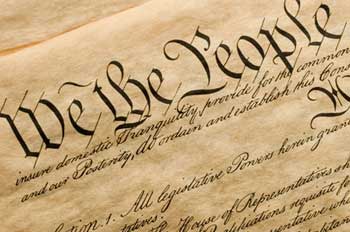 We the People
insure domestic Tranquility, provide for the common
and our Posterity, do ordain and establish this Cons
ion. 1. All legislative Powers herein grant
House of Representatives sh
tatives